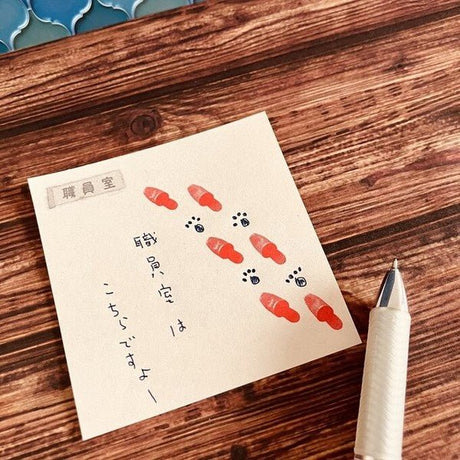 職員室
職員室は
こちらですよー